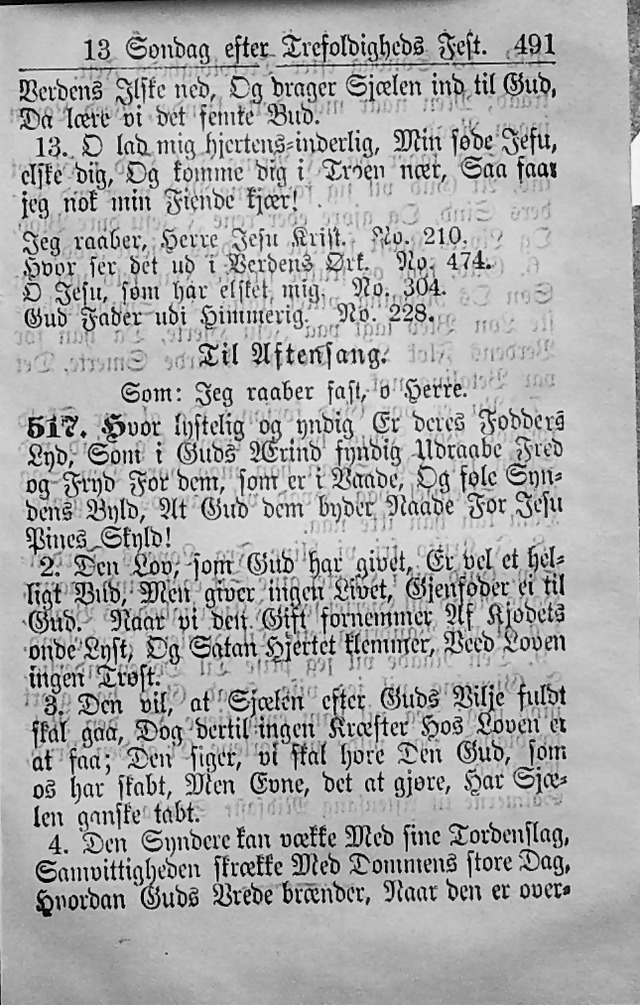 13 Søndag efter Trefoldigheds Fest. 491
Verdens Ilske ned, Og drager Sjælen ind til Gud,
Da lære vi det femte Bud.
13. O lad mig hjertens-inderlig, Min søde Jesu,
elske dig, Og komme dig i Troen nær, Saa faar
jeg nok min Fiende kjær!
Jeg raaber, Herre Jesu Krist. No. 210.
Hvor ser det ud i Verdens Ørk. No. 474.
O Jesu, som har elsket mig. No. 304.
Gud Fader udi Himmerig. No. 228.
Til Aftensang.
Som: Jeg raaber fast, o Herre.
517. Hvor lystelig og yndig Er deres Fødders
Lyd, Som i Guds Ærind fyndig Udraabe Fred
og Fryd For dem, som er i Vaade, Og føle Syn-
dens Byld, At Gud dem byder Naade For Jesu
Pines Skyld!
2. Den Lov, som Gud har givet, Er vel et hel-
ligt Bud, Men giver ingen Livet, Gjenføder ei til
Gud. Naar vi den Gift fornemmer Af Kjødets
onde Lyst, Og Satan Hjertet klemmer, Veed Loven
ingen Trøst.
3. Den vil, at Sjælen efter Guds Vilje fuldt
skal gaa, Dog dertil ingen Kræfter Hos Loven er
at faa; Den siger, vi skal høre Den Gud, som
os har skabt, Men Evne, det at gjøre, Har Sjæ-
len ganske tabt.
4. Den Syndere kan vække Med sine Tordenslag,
Samvittigheden skrække Med Dommens store Dag,
Hvordan Guds Vrede brænder, Naar den er over-